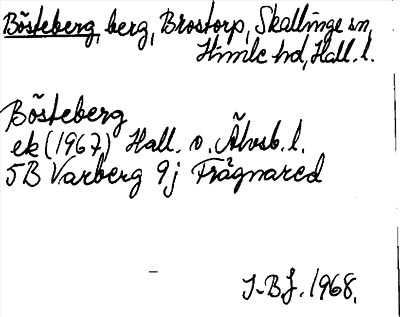 Bösteberg, berg, Brostorp, Skällinge sn,
Himle hd, Hall. l.
Bösteberg
ek (1967) Hall. o. Älvsb. l.
5B Varberg 9j Frägnared
J-BJ. 1968.